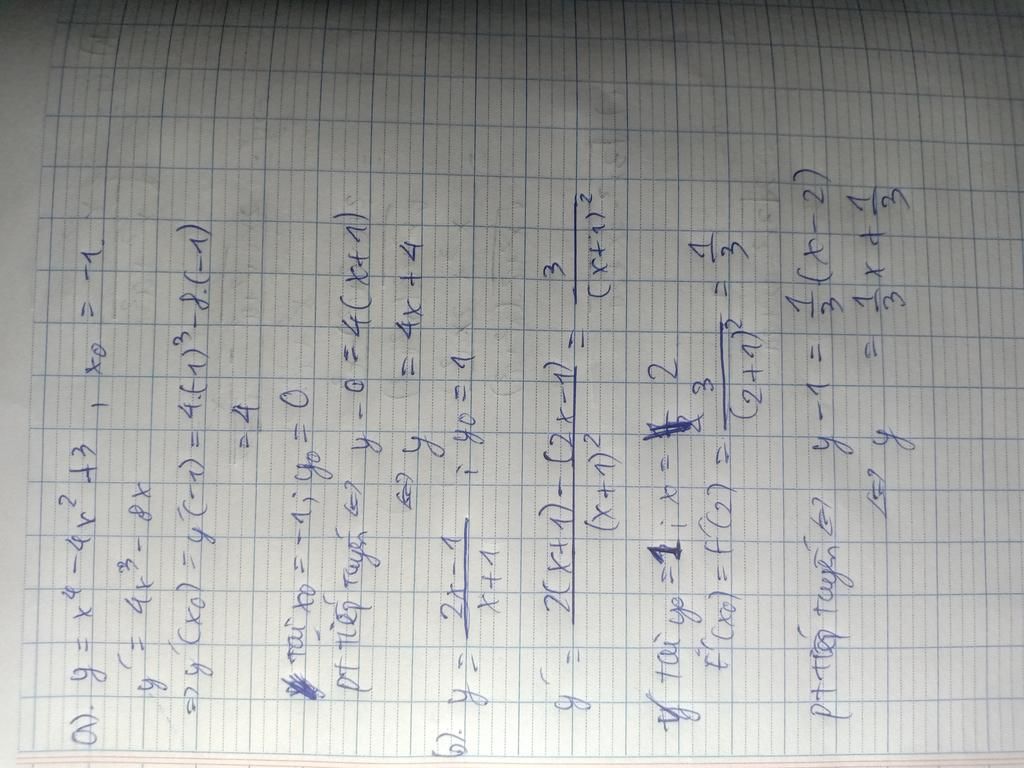 a). y = x⁴ - 4x² + 3 , x₀ = -1.
y' = 4x³ - 8x
⇒ y'(x₀) = y'(-1) = 4.(-1)³ - 8.(-1)
= 4
tại x₀ = -1; y₀ = 0
pt tiếp tuyến ⇔ y - 0 = 4(x+1)
⇔ y = 4x + 4
b). y = (2x - 1)/(x + 1) ; y₀ = 1
y' = (2(x+1) - (2x - 1))/(x+1)² = 3/(x+1)²
tại y₀ = 1 ; x = 2
f'(x₀) = f'(2) = 3/(2+1)² = 1/3
pt tiếp tuyến ⇔ y - 1 = 1/3 (x - 2)
⇔ y = 1/3 x + 1/3